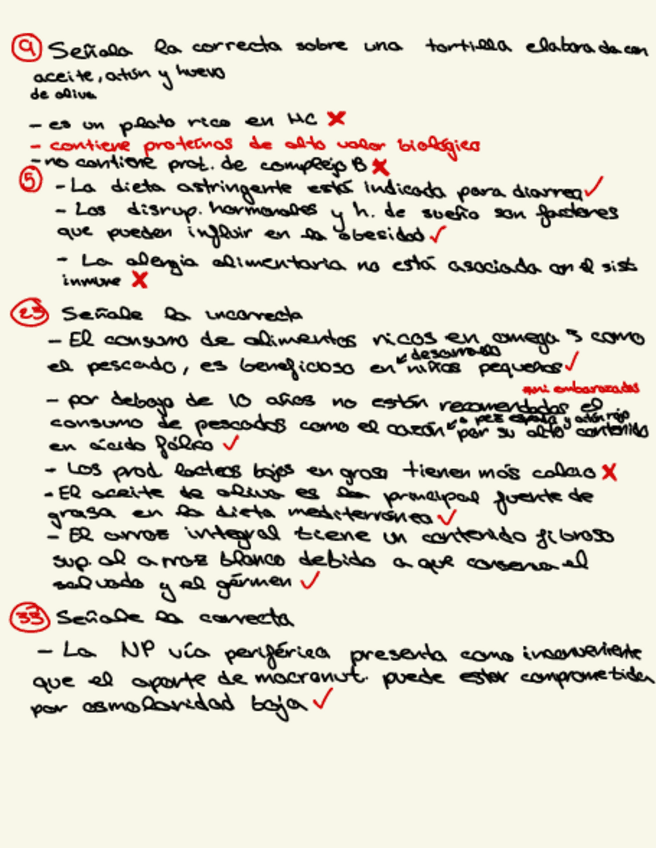 9 Señala la correcta sobre una tortilla elaborada con
aceite, atún y huevo
de oliva
- es un plato rico en HC X
- contiene proteínas de alto valor biológico
- no contiene prot. de complejo B X
5 - La dieta astringente está indicada para diarrea ✓
- Las disrup. hormonales y h. de sueño son factores
que pueden influir en la obesidad ✓
- La alergia alimentaria no está asociada con el sist
inmune X
23 Señale la incorrecta
- El consumo de alimentos ricos en omega 3 como
desarrollo
el pescado, es beneficioso en niños pequeños ✓
ni embarazadas
- por debajo de 10 años no están recomendadas el
o pez espada y atún rojo
consumo de pescados como el cazón por su alto contenido
en ácido fólico ✓
- Los prod. lacteos bajos en grasa tienen más calcio X
- El aceite de oliva es la principal fuente de
grasa en la dieta mediterránea ✓
- El arroz integral tiene un contenido fibroso
sup. al arroz blanco debido a que conserva el
salvado y el gérmen ✓
33 Señale la correcta
- La NP vía periférica presenta como inconveniente
que el aporte de macronut. puede estar comprometida
por osmolaridad baja ✓